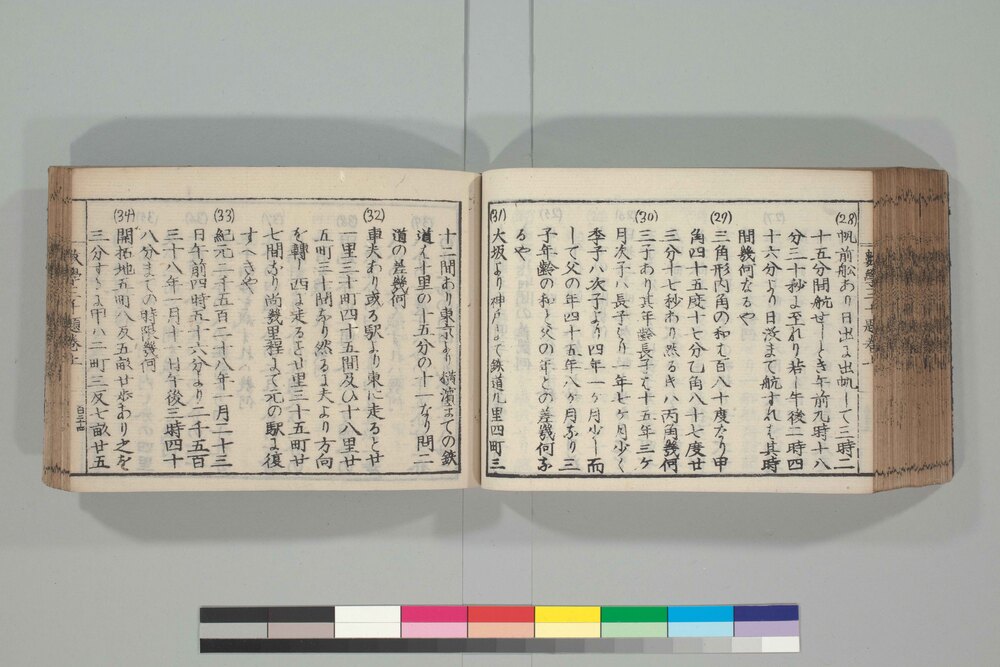 (28)
帆前舩あり日出に出帆して三時二
十五分間航せしとき午前九時十八
分三十秒に至れり若し午後二時四
十六分より日没まて航すれは其時
間幾何なるや
(29)
三角形内角の和は百八十度なり甲
角四十五度十七分乙角八十七度廿
三分十七秒あり然るときハ丙角幾何
(30)
三子あり其年齢長子は十五年三ケ
月次子ハ長子より一年七ケ月少く
季子ハ次子より四年一ケ月少し而
して父の年四十五年八ケ月なり三
子年齢の和と父の年との差幾何な
るや
(31)
大坂より神戸まて鉄道八里四町三
十二間あり東京より横濱まての鉄
道ハ十里の十五分の十一なり問二
道の差幾何
(32)
車夫あり或る駅より東に走ると廿
一里三十町四十五間及ひ十八里廿
五町三十間なり然るに夫より方向
を轉し西に走ると廿里三十五町廿
七間なり尚幾里程にて元の駅に復
すへきや
(33)
紀元二千五百二十八年一月二十三
日午前四時五十六分より二千五百
三十八年一月十十日午後三時四十
八分まての時限幾何
(34)
開拓地五町八反五畝廿歩あり之を
三分するに甲ハ二町三反七畝廿五
數學三千題巻上
百三十四